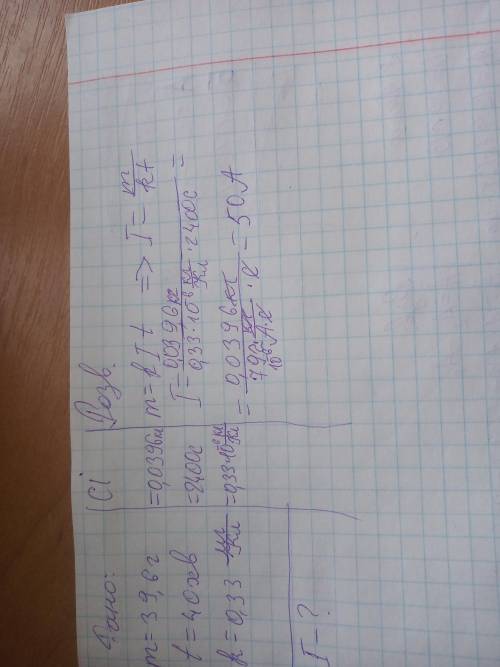 Дано:
m = 39,6 г
t = 40 хв
k = 0,33 мг/Кл
I - ?
СІ
= 0,0396 кг
= 2400 с
= 0,33·10⁻⁶ кг/Кл
Розв.
m = k I t => I = m/kt
I = 0,0396 кг / 0,33·10⁻⁶ кг/Кл · 2400 с =
= 0,0396 кг / 792 кг / 10⁻⁶ А·с · с = 50 А